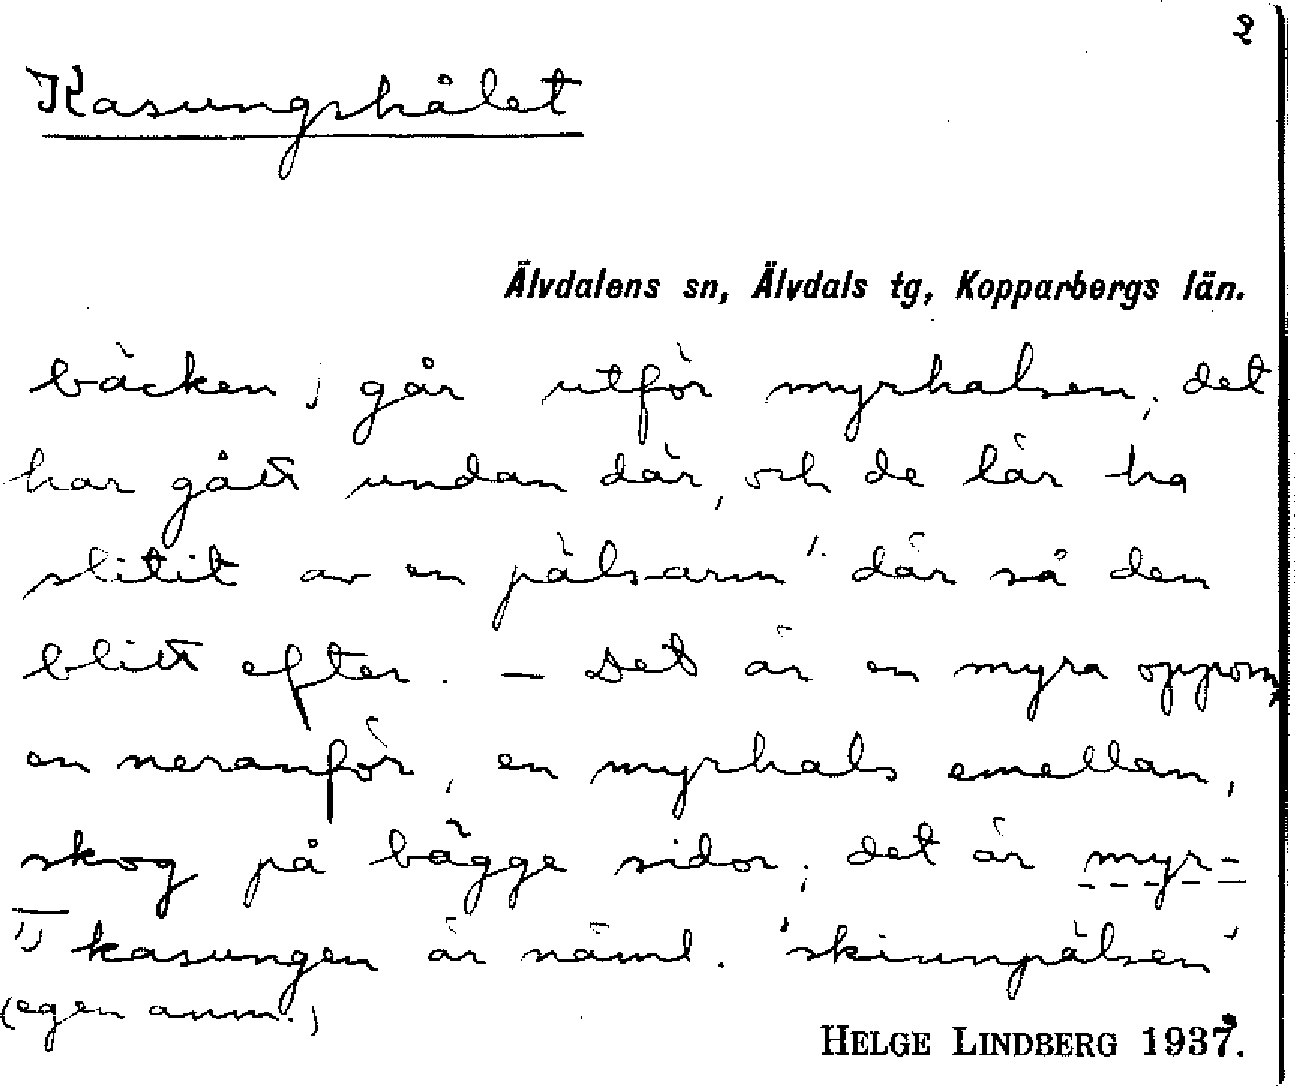 2
Kasungshålet
Älvdalens sn, Älvdals tg, Kopparbergs län.
bäcken; går utför myrhalsen; det
har gått undan där, och de lär ha
slitit av en pälsarm ¹⁾ där så den
blitt efter. — Det är en myra oppom,
en neranför, en myrhals emellan,
skog på bägge sidor; det är myr-
¹⁾ kasungen är näml. 'skinnpälsen'
(egen anm.)
HELGE LINDBERG 1937.